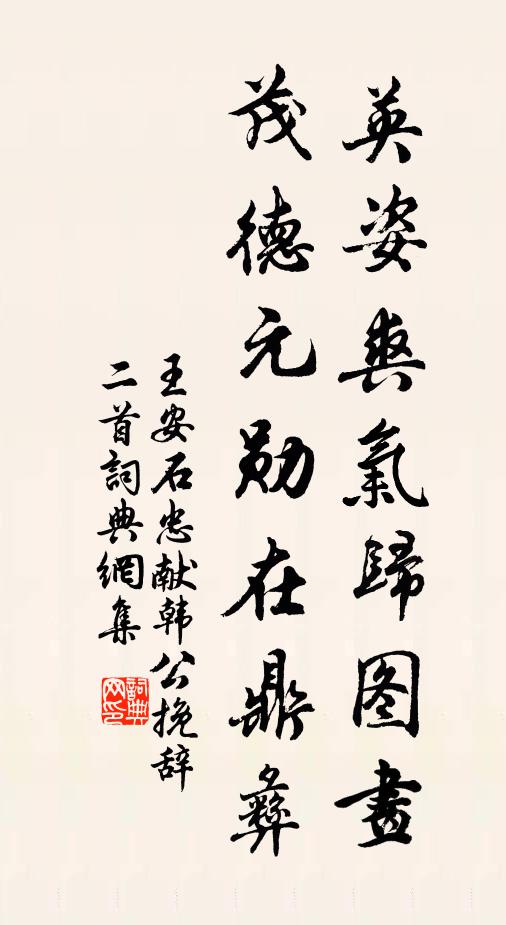 英姿爽氣歸图畫
茂德元勋在鼎彝
王安石忠献韩公挽辞
二首詞典網集
詞典
网印